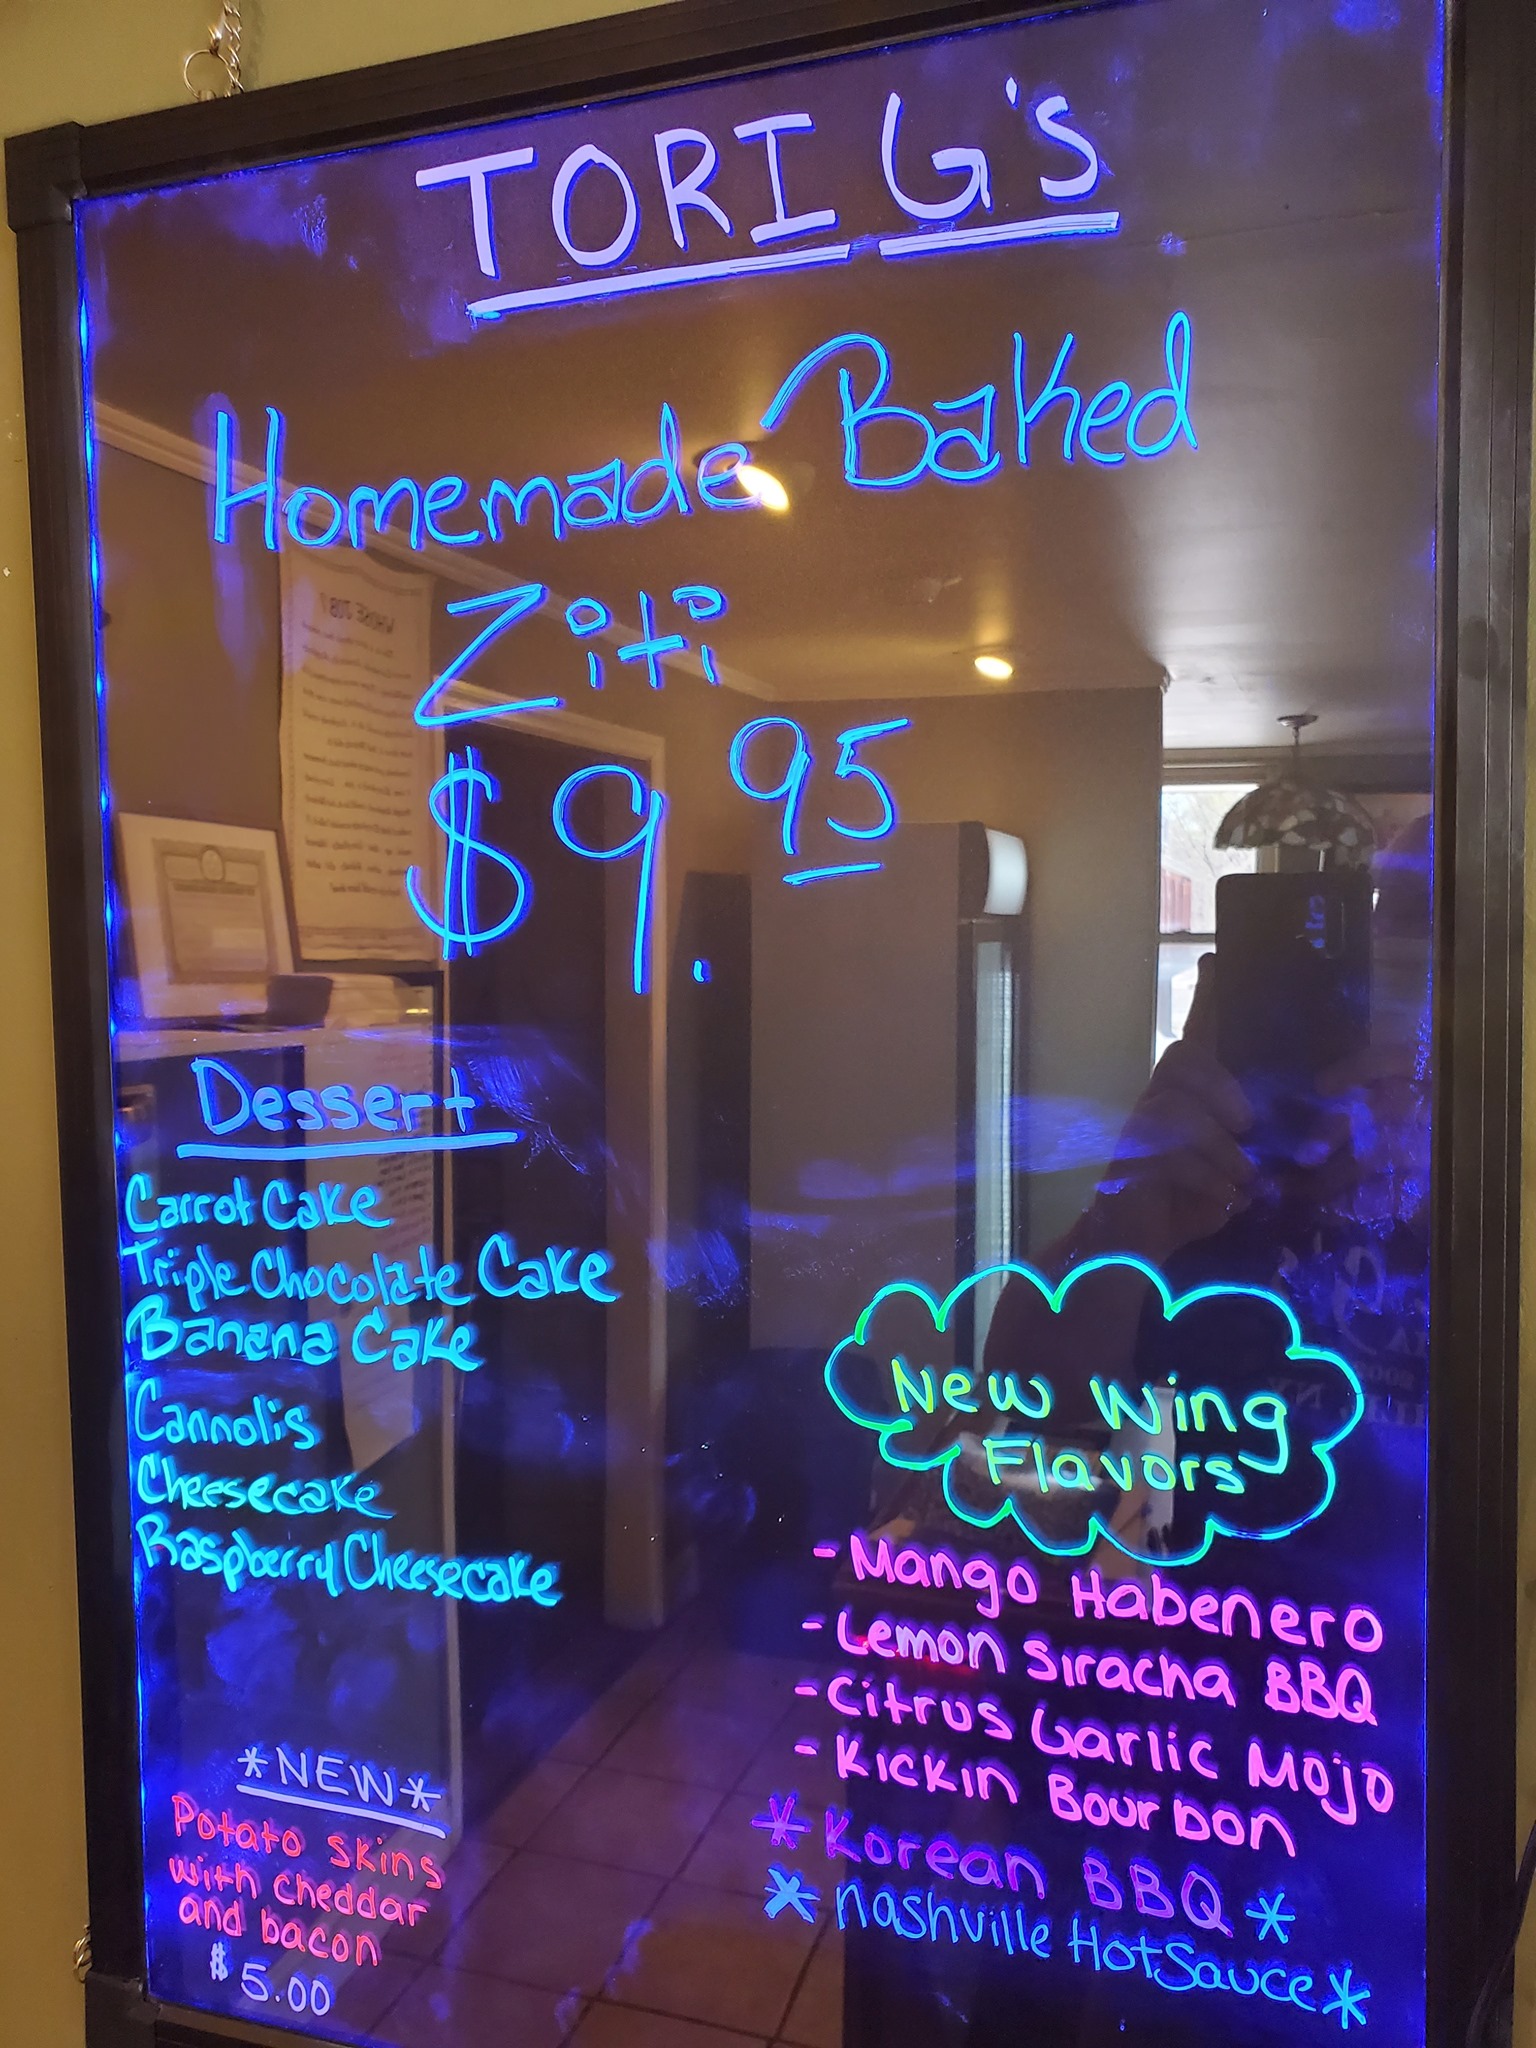 TORI G's
Homemade Baked
Ziti
$9.95
Dessert
Carrot Cake
Triple Chocolate Cake
Banana Cake
Cannolis
Cheesecake
Raspberry Cheesecake
*NEW*
Potato skins
with cheddar
and bacon
$5.00
New Wing
Flavors
- Mango Habenero
- Lemon Siracha BBQ
- Citrus Garlic Mojo
- Kickin Bourbon
* Korean BBQ *
* Nashville Hot Sauce *
WHOSE JOB?